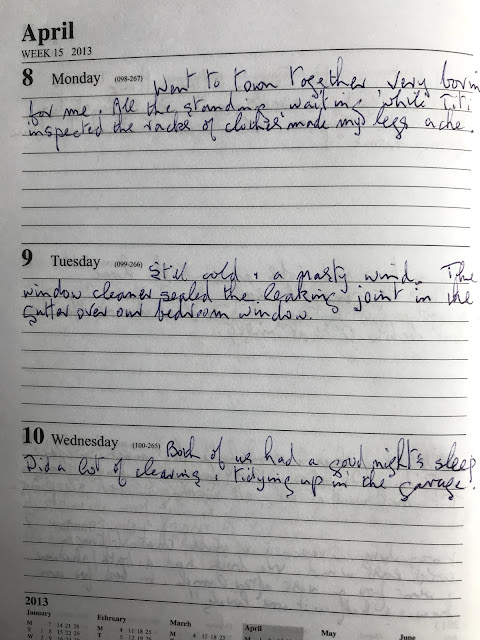 April
WEEK 15 2013
8 Monday (098-267) Went to town together, very borin
for me. All the standing, waiting while Titi
inspected the racks of clothes made my legs ache.
9 Tuesday (099-266) Still cold & a nasty wind. The
window cleaner sealed the leaking joint in the
gutter over our bedroom window.
10 Wednesday (100-265) Both of us had a good night's sleep.
Did a lot of cleaning & tidying up in the garage.
2013
January February March April May June
M 7 14 21 28 M 4 11 18 25 M 4 11 18 25
T 1 8 15 22 29